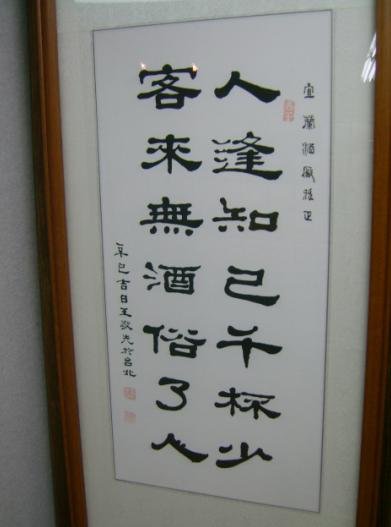 宜蘭酒廠雅正
人逢知己千杯少
客來無酒俗了人
辛巳吉日王敬先於台北